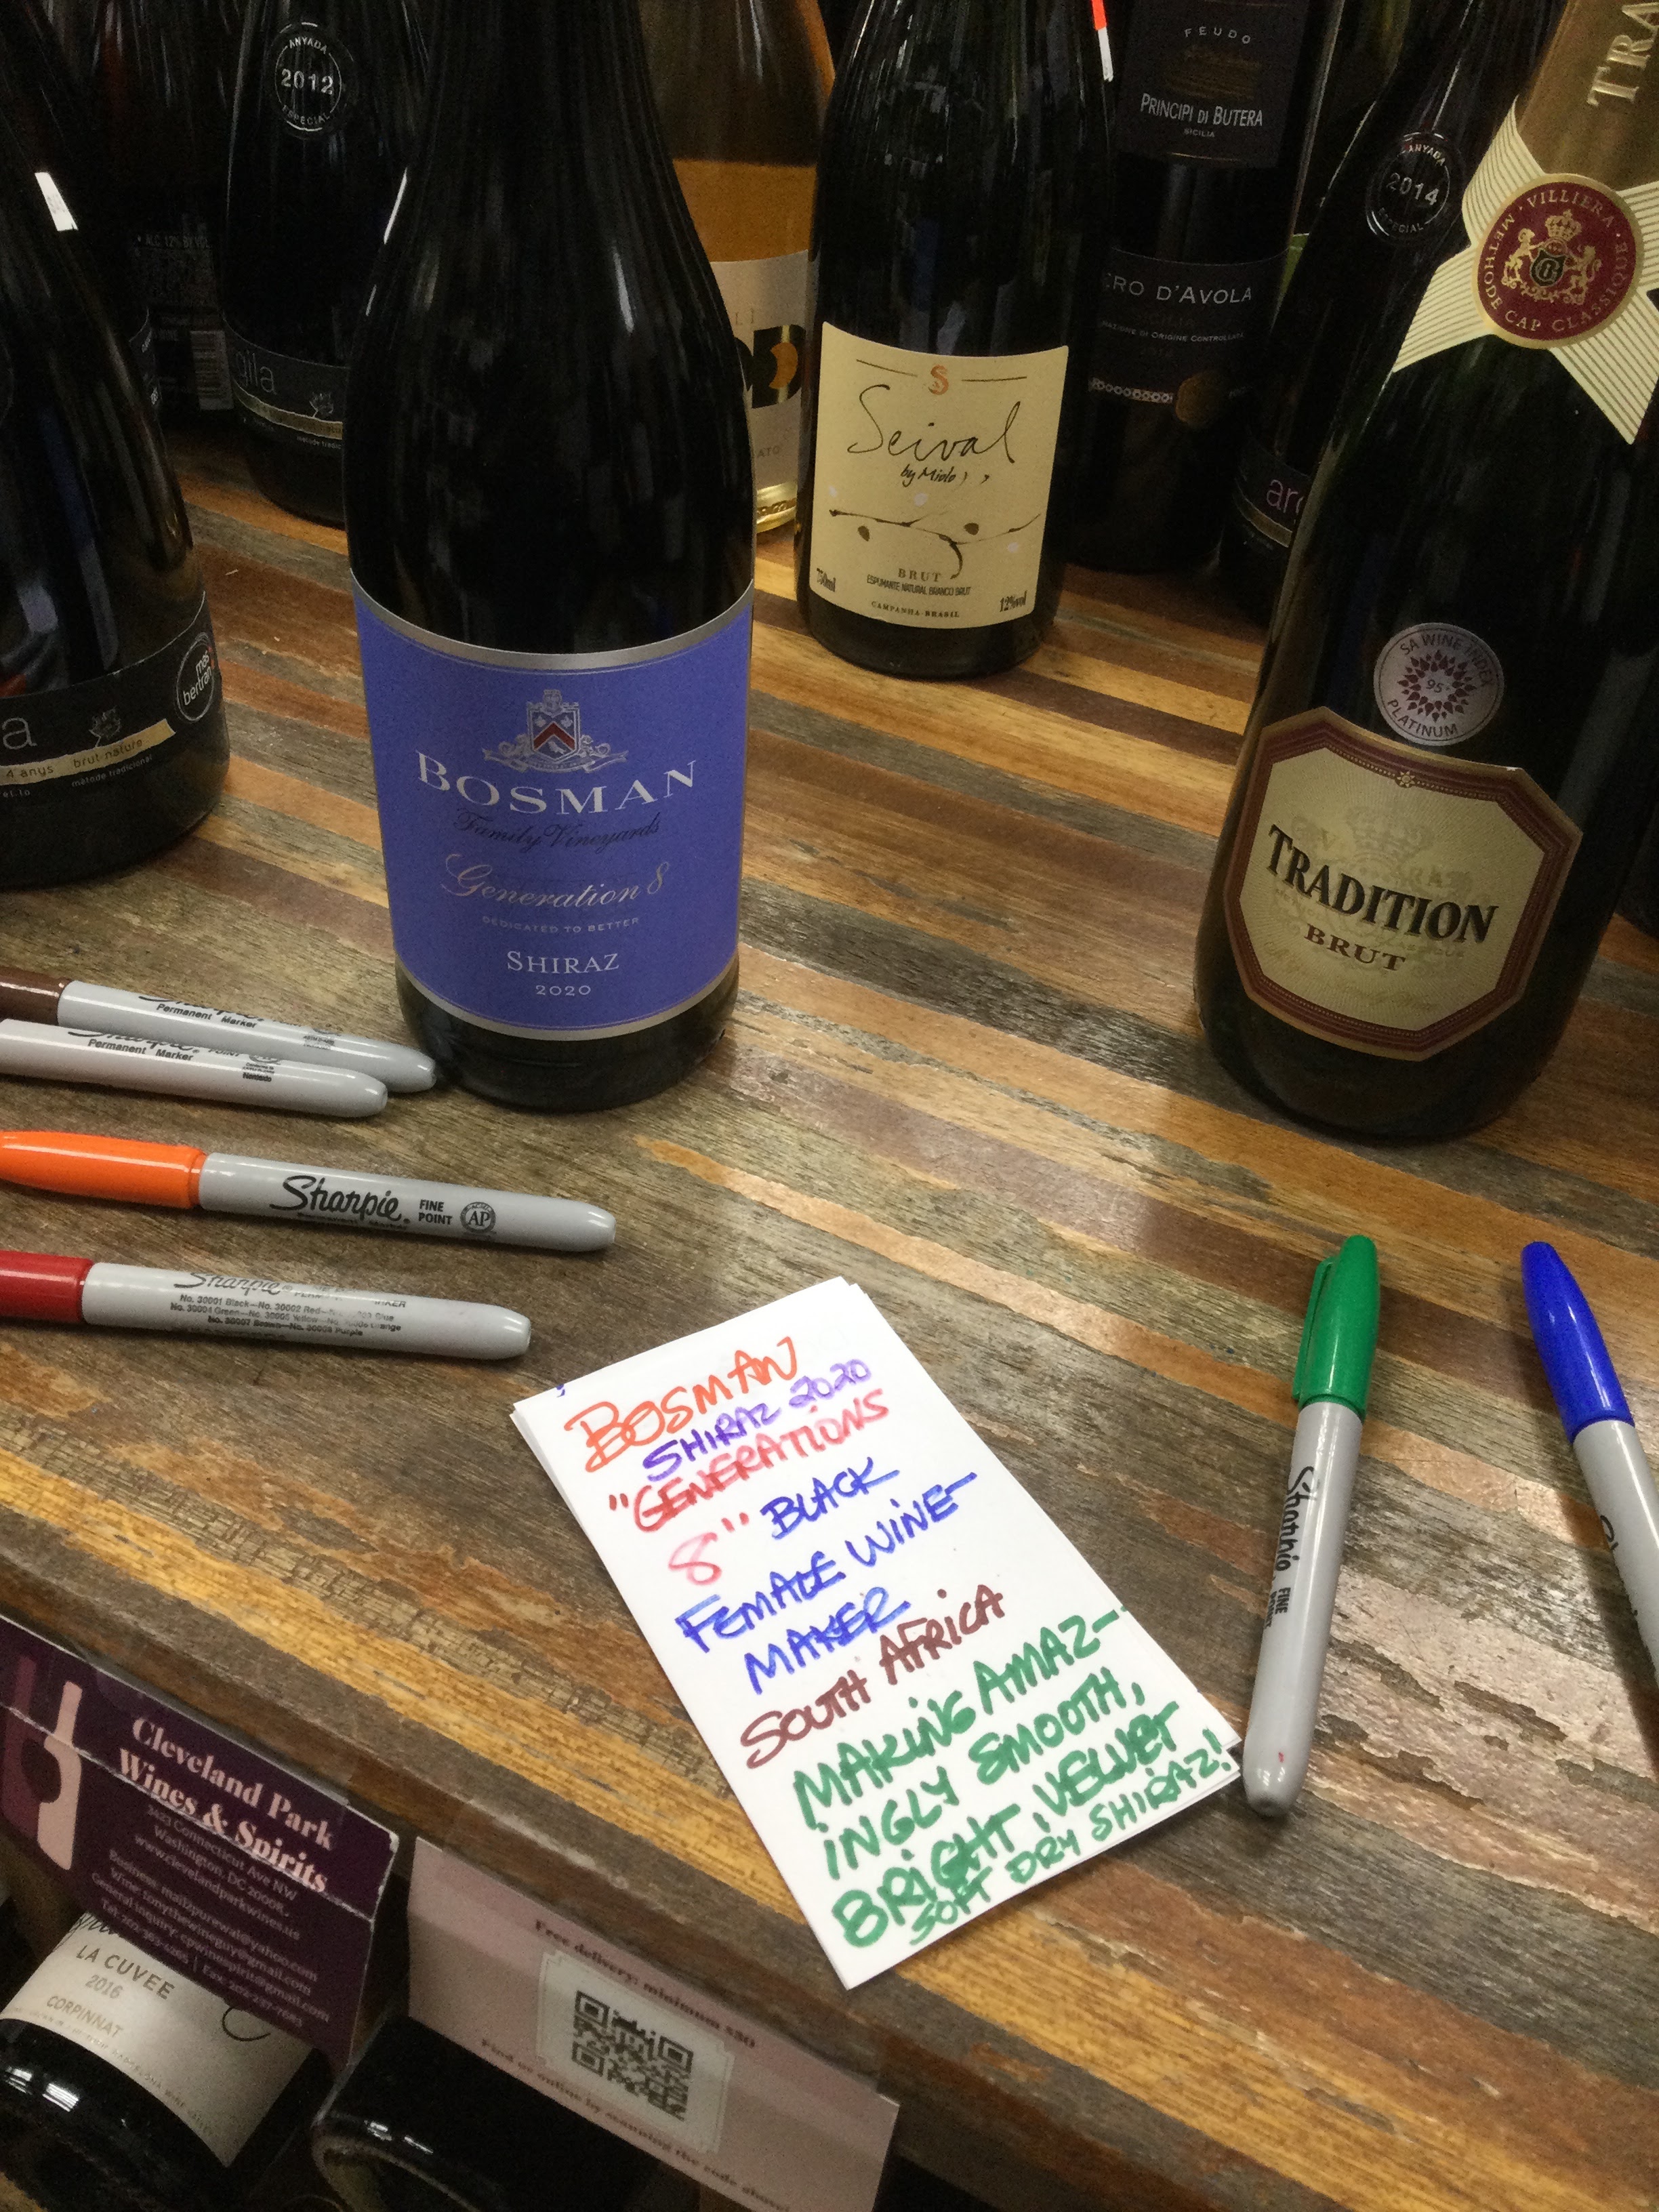 ANYADA
2012
ESPECIAL
FEUDO
PRINCIPI DI BUTERA
SICILIA
TRA
ANYADA
2014
ESPECIAL
VILLIERA
METHODE CAP CLASSIQUE
ALC. 12% BY VOL
RO D'AVOLA
DI ORIGINE CONTROLLATA
gila
S
Seival
by Miolo
BRUT
ESPUMANTE NATURAL BRANCO BRUT
750ml
12%vol
CAMPANHA-BRASIL
SA WINE INDEX
95+
PLATINUM
mas
bertran
a
4 anys brut nature
mètode tradicional
BOSMAN
Family Vineyards
Generation 8
DEDICATED TO BETTER
SHIRAZ
2020
TRADITION
BRUT
Sharpie
Permanent Marker
Permanent Marker
Sharpie
FINE
POINT
AP
Sharpie
No. 30001 Black—No. 30002 Red
No. 30004 Green—No. 30005 Yellow
No. 30007 Brown—No. 30008 Purple
Sharpie
FINE
BOSMAN
SHIRAZ 2020
"GENERATIONS
8" BLACK
FEMALE WINE-
MAKER
SOUTH AFRICA
MAKING AMAZ-
INGLY SMOOTH,
BRIGHT, VELVET
SOFT DRY SHIRAZ!
Cleveland Park
Wines & Spirits
3423 Connecticut Ave NW
Washington, DC 20008
www.clevelandparkwines.us
Business: mail2purewal@yahoo.com
Wine: tonythewineguy@gmail.com
General inquiry: cpwinespirit@gmail.com
Tel: 202-363-4265 | Fax: 202-237-7083
LA CUVEE
2016
CORPINNAT
Free delivery: minimum $30
Find us online by scanning the code above!